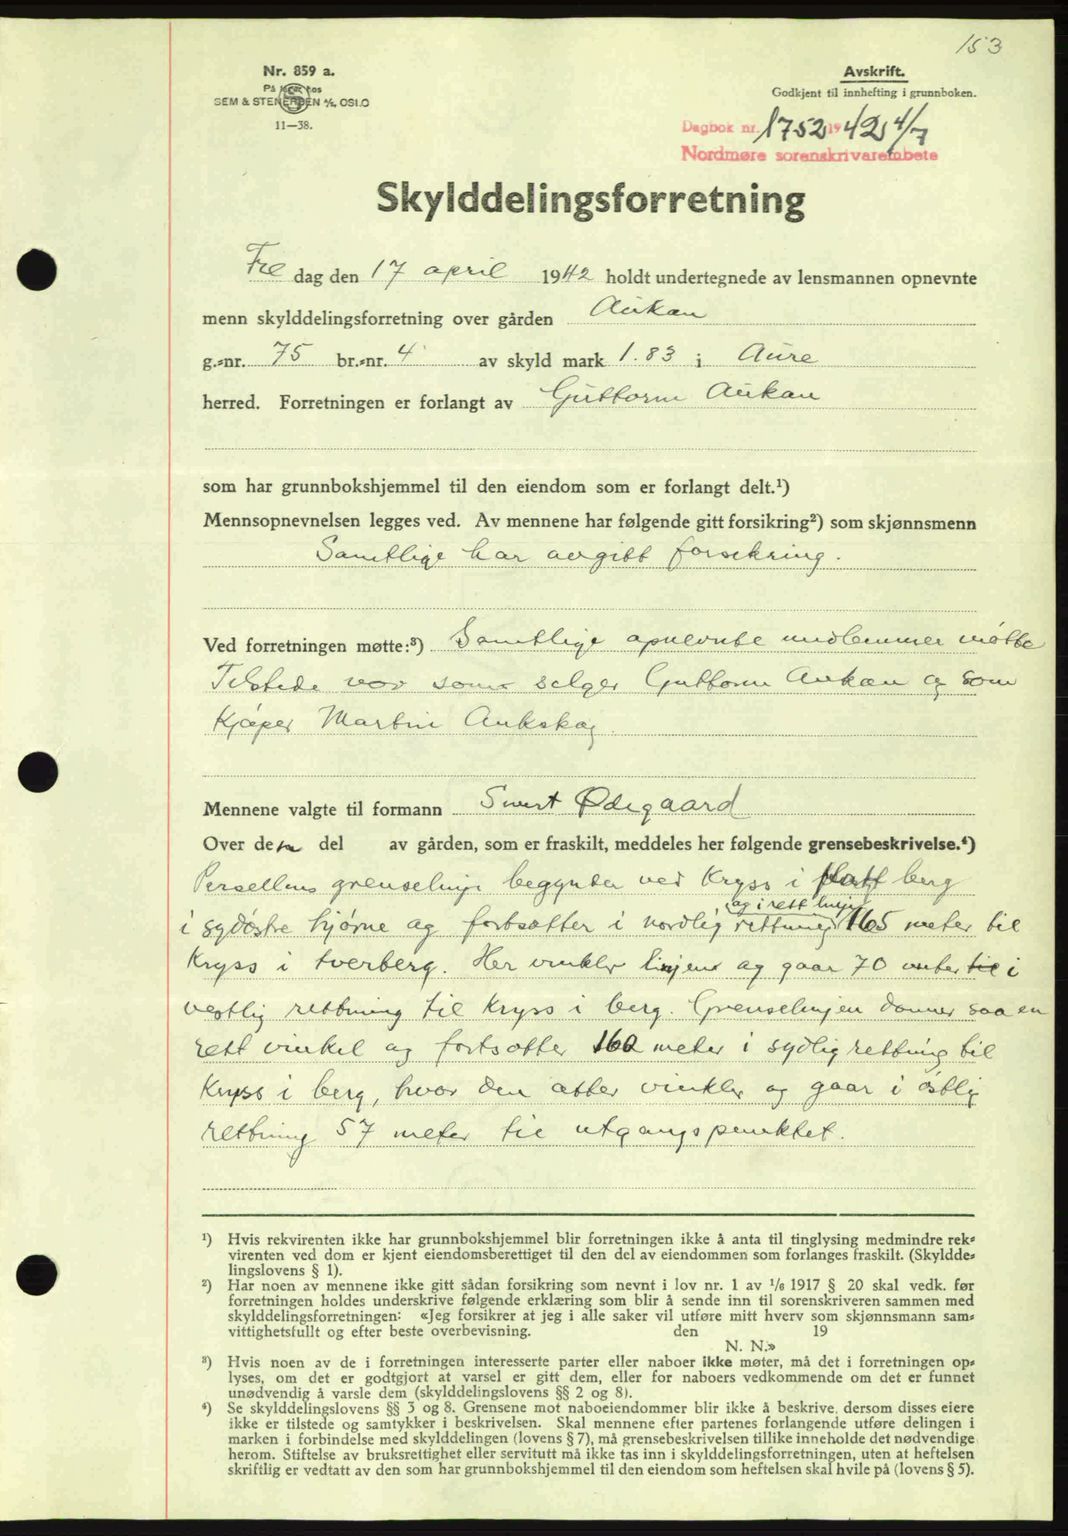 153
Nr. 859 a.
På lager hos
SEM & STENERSEN A/S, OSLO
11—38.
Avskrift.
Godkjent til innhefting i grunnboken.
Dagbok nr. 1752 1942 4/7
Nordmøre sorenskrivarembete
Skylddelingsforretning
Fre dag den 17 april 1942 holdt undertegnede av lensmannen opnevnte
menn skylddelingsforretning over gården Aukan
g.-nr. 75 br.-nr. 4 av skyld mark 1.83 i Aure
herred. Forretningen er forlangt av Guttorm Aukan
som har grunnbokshjemmel til den eiendom som er forlangt delt.¹)
Mennsopnevnelsen legges ved. Av mennene har følgende gitt forsikring²) som skjønnsmenn
Samtlige har avgitt forsikring.
Ved forretningen møtte:³) Samtlige opnevnte medlemmer møtte
Tilstede var som selger Guttorm Aukan og som
Kjøper Martin Aukskag.
Mennene valgte til formann Sivert Ødegaard
Over denne del av gården, som er fraskilt, meddeles her følgende grensebeskrivelse.⁴)
Persellens grenselinje begynder ved Kryss i flatt berg
i sydøstre hjørne og fortsætter i nordlig rettning og i rett linje 165 meter til
Kryss i tverberg. Her vinkler linjen og gaar 70 meter til i
vestlig rettning til Kryss i berg. Grenselinjen danner saa en
rett vinkel og fortsætter 160 meter i sydlig rettning til
Kryss i berg, hvor den atter vinkler og gaar i østlig
rettning 57 meter til utgangspunktet.
¹) Hvis rekvirenten ikke har grunnbokshjemmel blir forretningen ikke å anta til tinglysing medmindre rek-
virenten ved dom er kjent eiendomsberettiget til den del av eiendommen som forlanges fraskilt. (Skyldde-
lingslovens § 1).
²) Har noen av mennene ikke gitt sådan forsikring som nevnt i lov nr. 1 av 1/6 1917 § 20 skal vedk. før
forretningen holdes underskrive følgende erklæring som blir å sende inn til sorenskriveren sammen med
skylddelingsforretningen: «Jeg forsikrer at jeg i alle saker vil utføre mitt hverv som skjønnsmann sam-
vittighetsfullt og efter beste overbevisning. den 19
N. N.»
³) Hvis noen av de i forretningen interesserte parter eller naboer ikke møter, må det i forretningen op-
lyses, om det er godtgjort at varsel er gitt dem, eller for naboers vedkommende om det er funnet
unødvendig å varsle dem (skylddelingslovens §§ 2 og 8).
⁴) Se skylddelingslovens §§ 3 og 8. Grensene mot naboeiendommer blir ikke å beskrive, dersom disses eiere
ikke er tilstede og samtykker i beskrivelsen. Skal mennene efter partenes forlangende utføre delingen i
marken i forbindelse med skylddelingen (lovens § 7), må grensebeskrivelsen tillike inneholde det nødvendige
herom. Stiftelse av bruksrettighet eller servitutt må ikke tas inn i skylddelingsforretningen, uten at heftelsen
skriftlig er vedtatt av den som har grunnbokshjemmel til den eiendom som heftelsen skal hvile på (lovens § 5).